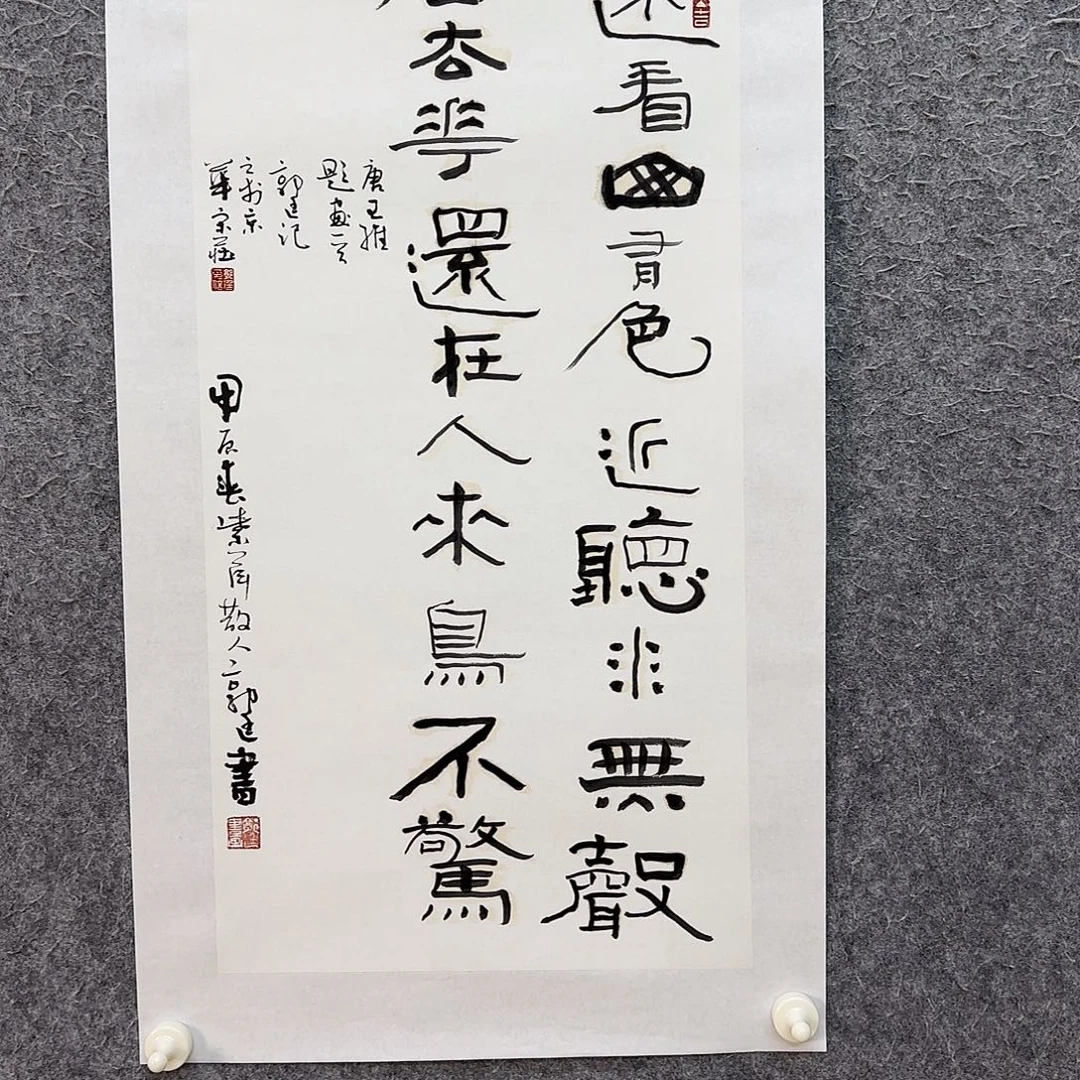 遠看山有色近聽水無聲
去華還在人來鳥不驚
唐王維
題畫一首
郭廷記
之於京
華宗莊
甲辰春紫閣散人郭廷書